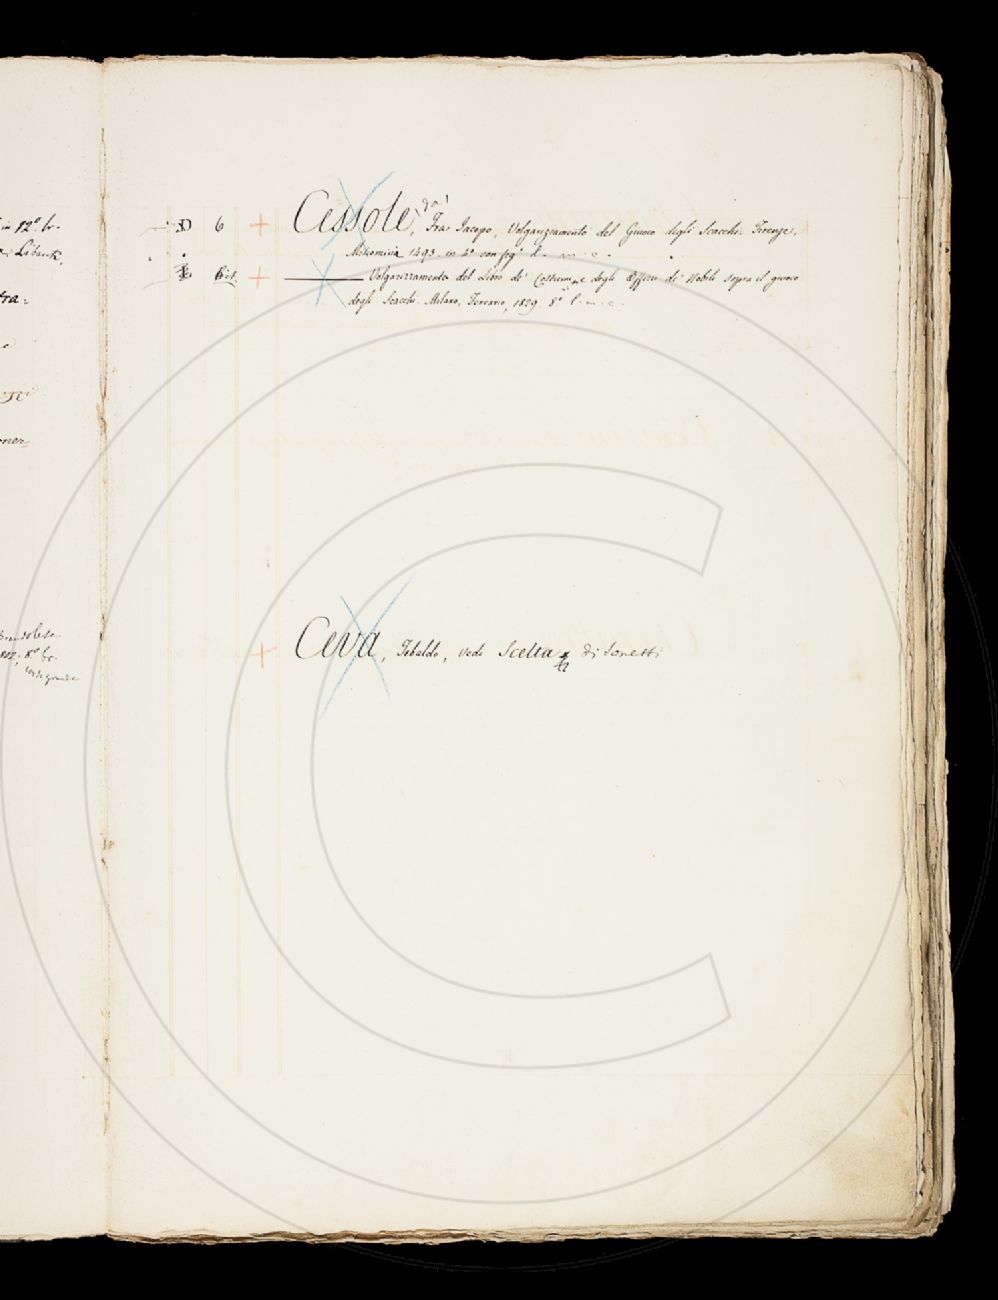 in 12° br.
tra=
8° br.
D 6 + Cessole, da' Fra Jacopo, Volgarizzamento del Giuoco degli Scacchi. Firenze,
Miscomini 1493. in 4° con fig.
6 bis + ——— Volgarizzamento del Libro de' Costumi e degli Offizii de' Nobili sopra il giuoco
degli Scacchi. Milano, Ferrario, 1829. 8°
+ Ceva, Tebaldo, vedi Scelta di Sonetti